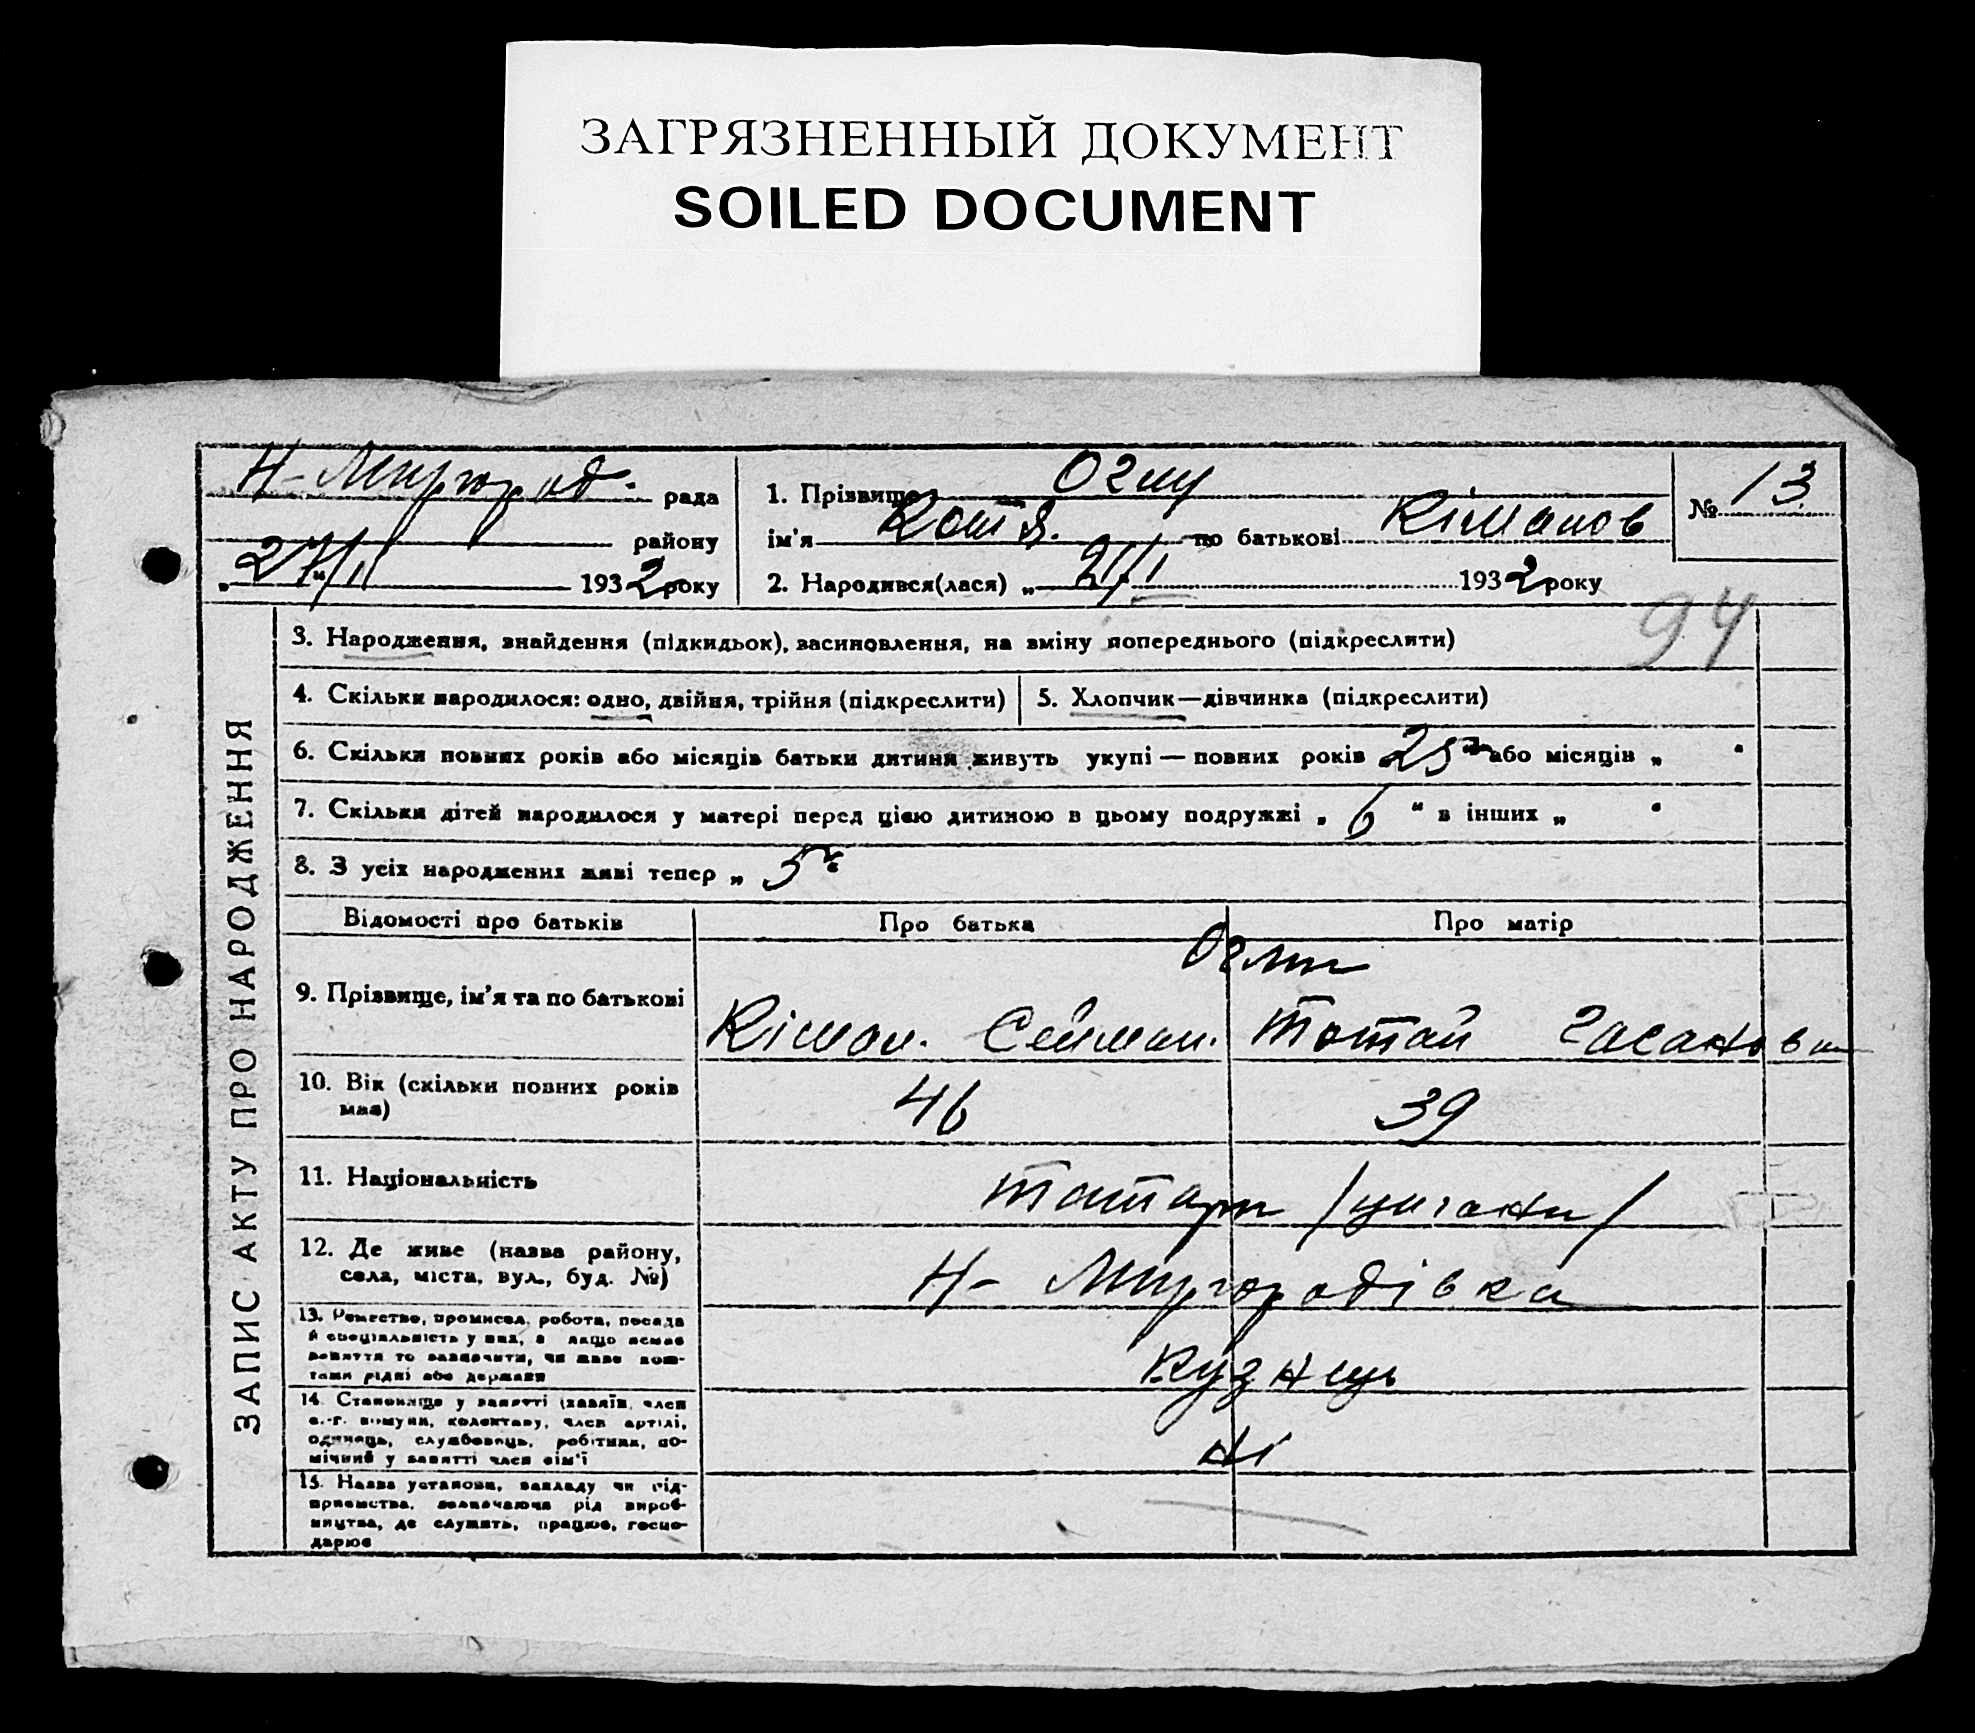 ЗАГРЯЗНЕННЫЙ ДОКУМЕНТ
SOILED DOCUMENT
Н-Миргород. рада
району
„27/II 1932 року
1. Прізвище
ім'я Котя. по батькові Кіманов
2. Народився(лася) „ /I 1932 року
№ 13
94
ЗАПИС АКТУ ПРО НАРОДЖЕННЯ
3. Народження, знайдення (підкидьок), засиновлення, на зміну попереднього (підкреслити)
4. Скільки народилося: одно, двійня, трійня (підкреслити)
5. Хлопчик—дівчинка (підкреслити)
6. Скільки повних років або місяців батьки дитини живуть укупі — повних років 25 або місяців „
7. Скільки дітей народилося у матері перед цією дитиною в цьому подружжі „ 6 “ в інших „
8. З усіх народжених живі тепер „ 5
Відомості про батьків
Про батька
Про матір
9. Прізвище, ім'я та по батькові
Огли
Кіман. Сейман.
Тотай Гасановн
10. Вік (скільки повних років має)
46
39
11. Національність
татари /цигани/
12. Де живе (назва району,
села, міста, вул., буд. №)
Н- Миргородівка
13. Ремество, промисел, робота, посада
й спеціяльність у них, а якщо немає
заняття то зазначити, чи живе кош-
тами рідні або держави
кузнець
14. Становище у занятті (хазяїн, член
с.-г. комуни, колективу, член артілі,
одинець, службовець, робітник, по-
мічний у занятті член сім'ї
ні
15. Назва установи, закладу чи під-
приємства, зазначаючи рід вироб-
ництва, де служить, працює, госпо-
дарює